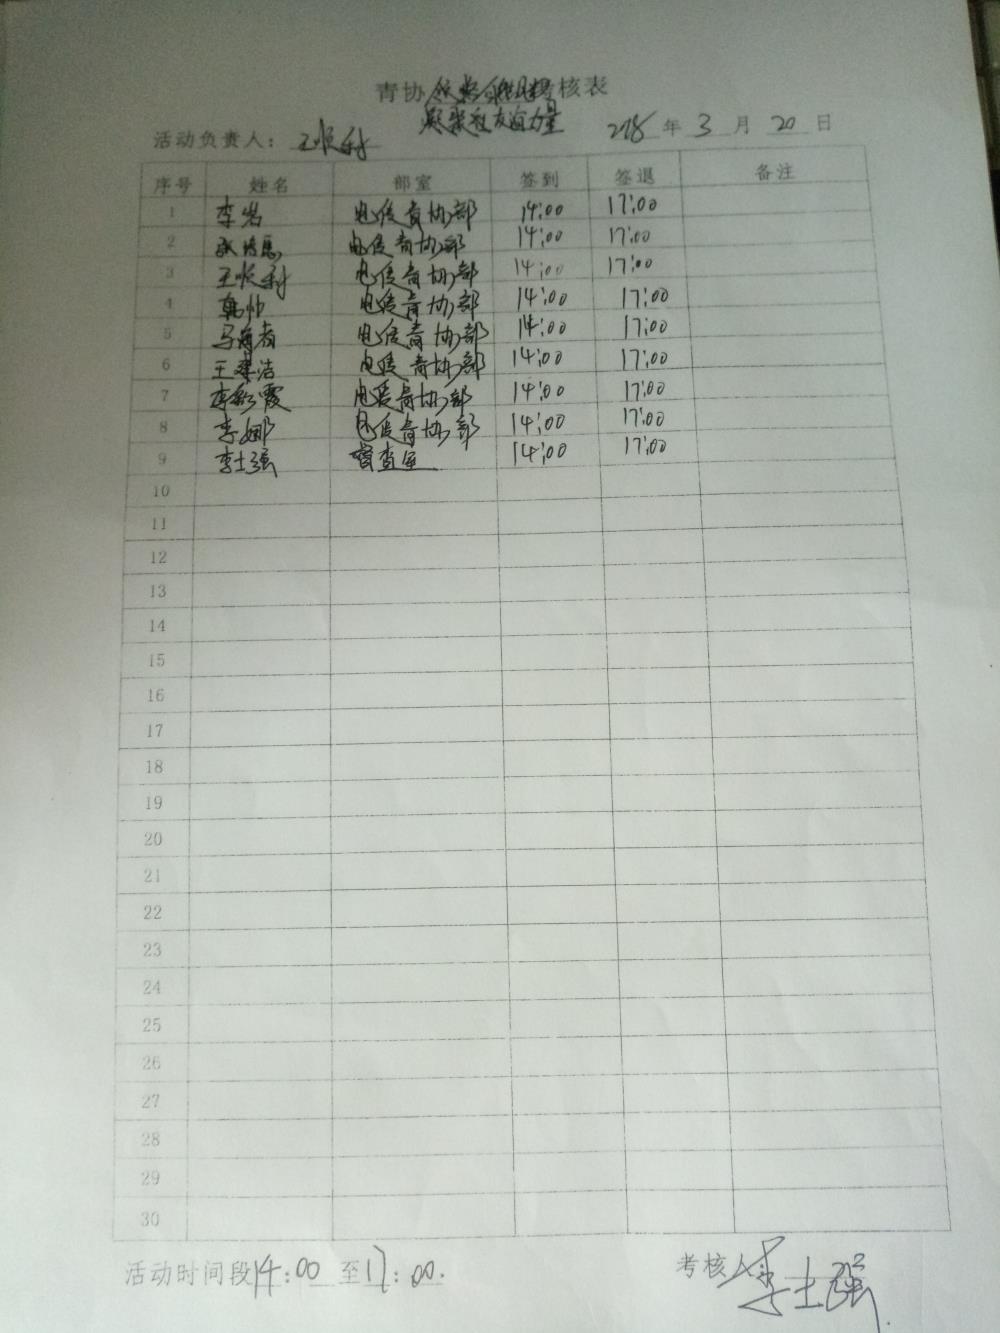 青协 考核表
凝聚 友谊力量
活动负责人：王顺利 2018年3月20日
序号 姓名 部室 签到 签退 备注
1 李岩 电信青协部 14:00 17:00
2 电信青协部 14:00 17:00
3 王顺利 电信青协部 14:00 17:00
4 韩帅 电信青协部 14:00 17:00
5 马 电信青协部 14:00 17:00
6 王 洁 电信青协部 14:00 17:00
7 李彩霞 电信青协部 14:00 17:00
8 李娜 电信青协部 14:00 17:00
9 李士强 督查室 14:00 17:00
10
11
12
13
14
15
16
17
18
19
20
21
22
23
24
25
26
27
28
29
30
活动时间段14:00至17:00. 考核人 李士强